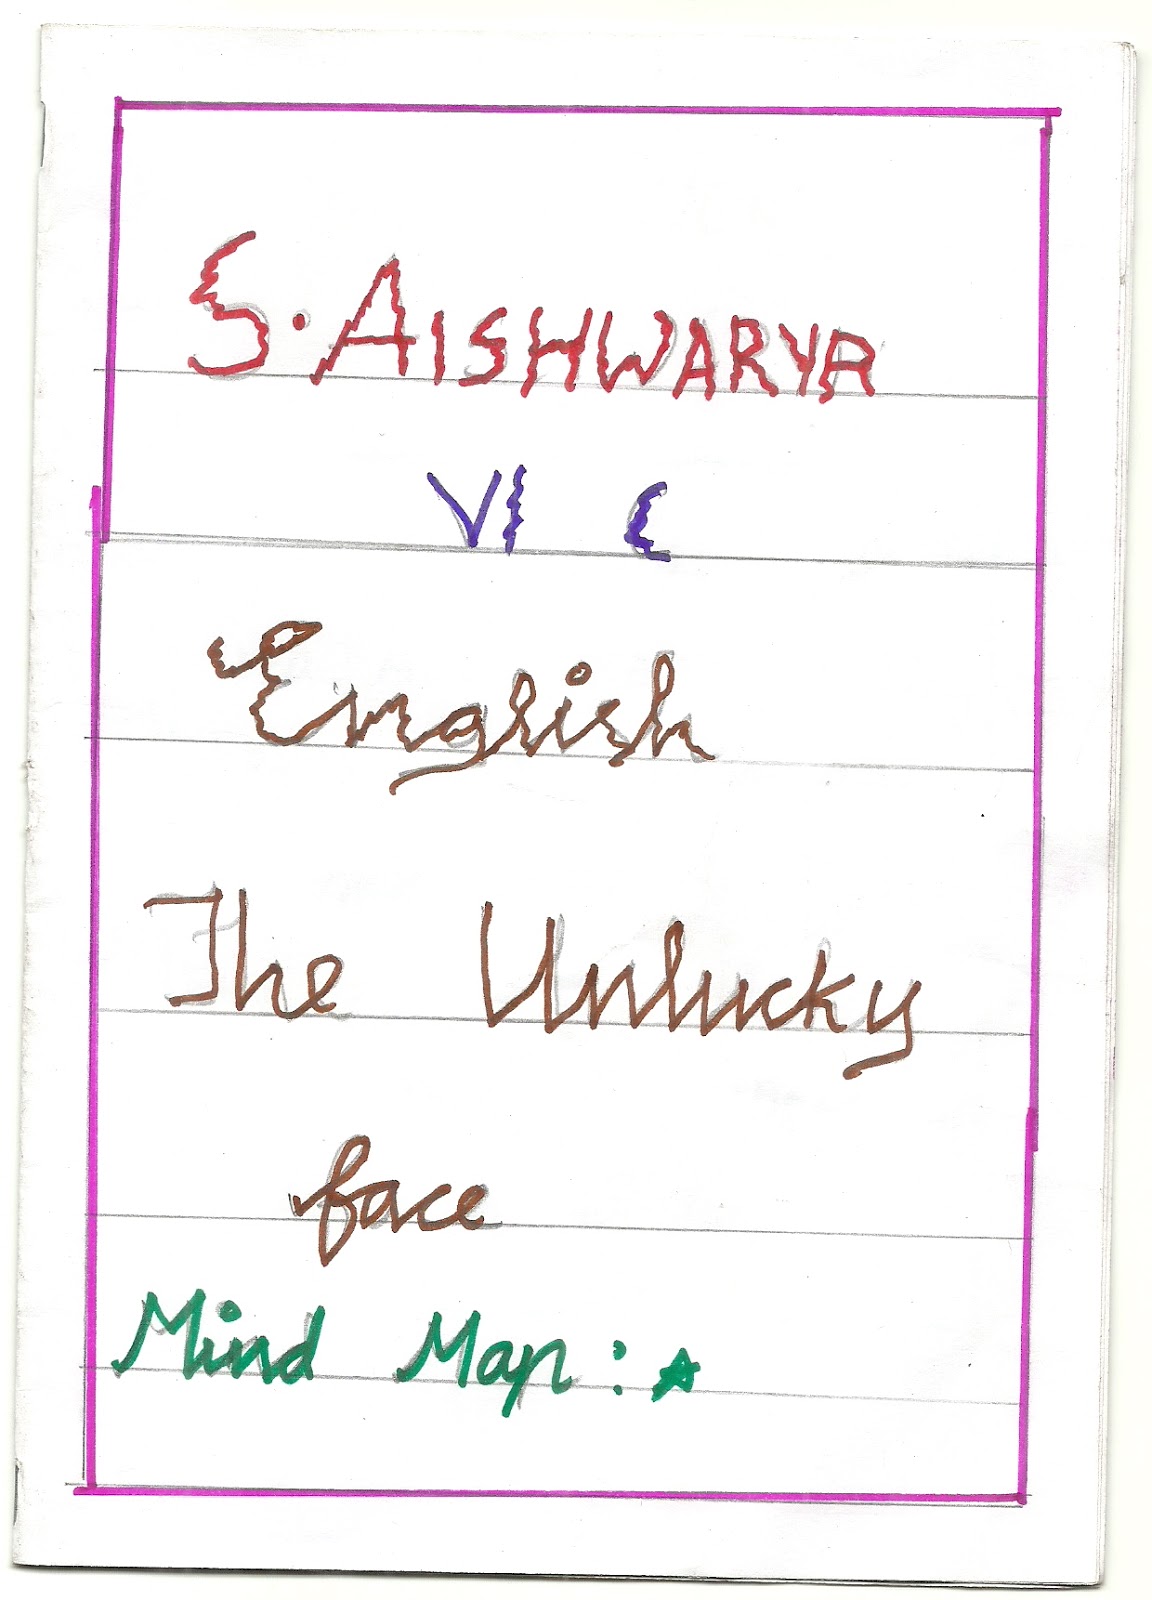 S. AISHWARYA
VI C
English
The Unlucky
face
Mind Map : ☆